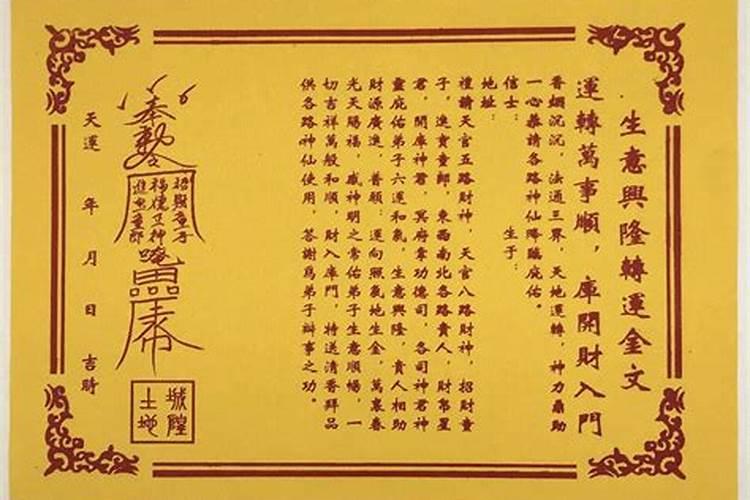 生意興隆轉運金文
運轉萬事順，庫開財入門
香烟沉沉，法通三界，天地運轉，神力鼎助
一心恭請各路神仙降臨庇佑。
信士：　生于：
地址：
禮請天官五路財神，天官八路財神，招財童
子，進寶童郎，東西南北各路貴人，財帛星
君，開庫神君，冥府掌功德司，各司神君神
靈庇佑弟子六運和氣，生意興隆，貴人相助
財源廣進，普願：運向照氣地生金，萬裏春
光天賜福，感神明之常佑弟子生意順暢，一
切吉祥萬般和順，財入庫門，特送清香拜品
供各路神仙使用，答謝爲弟子辦事之功。
奉勅令
招財童子
福德正神
進寶童郎
天運　年　月　日　吉時
城隍
土地